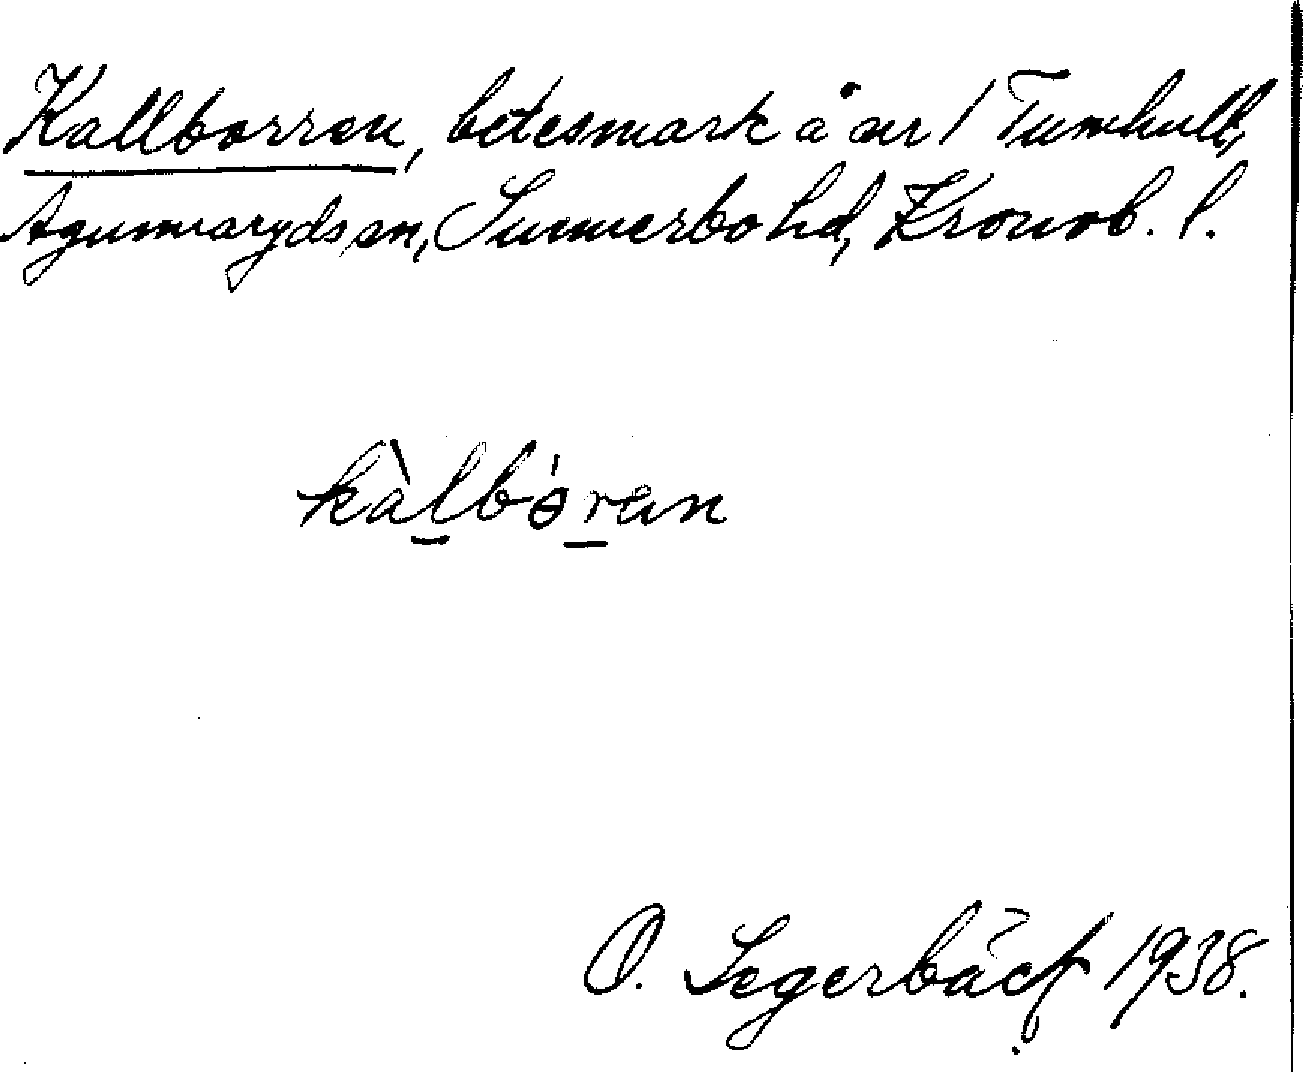 Kallborren, betesmark å nr 1 Tumhult,
Agunnaryds sn, Sunnerbo hd, Kronob. l.
kàlbór̲an
O. Segerbäck 1938.